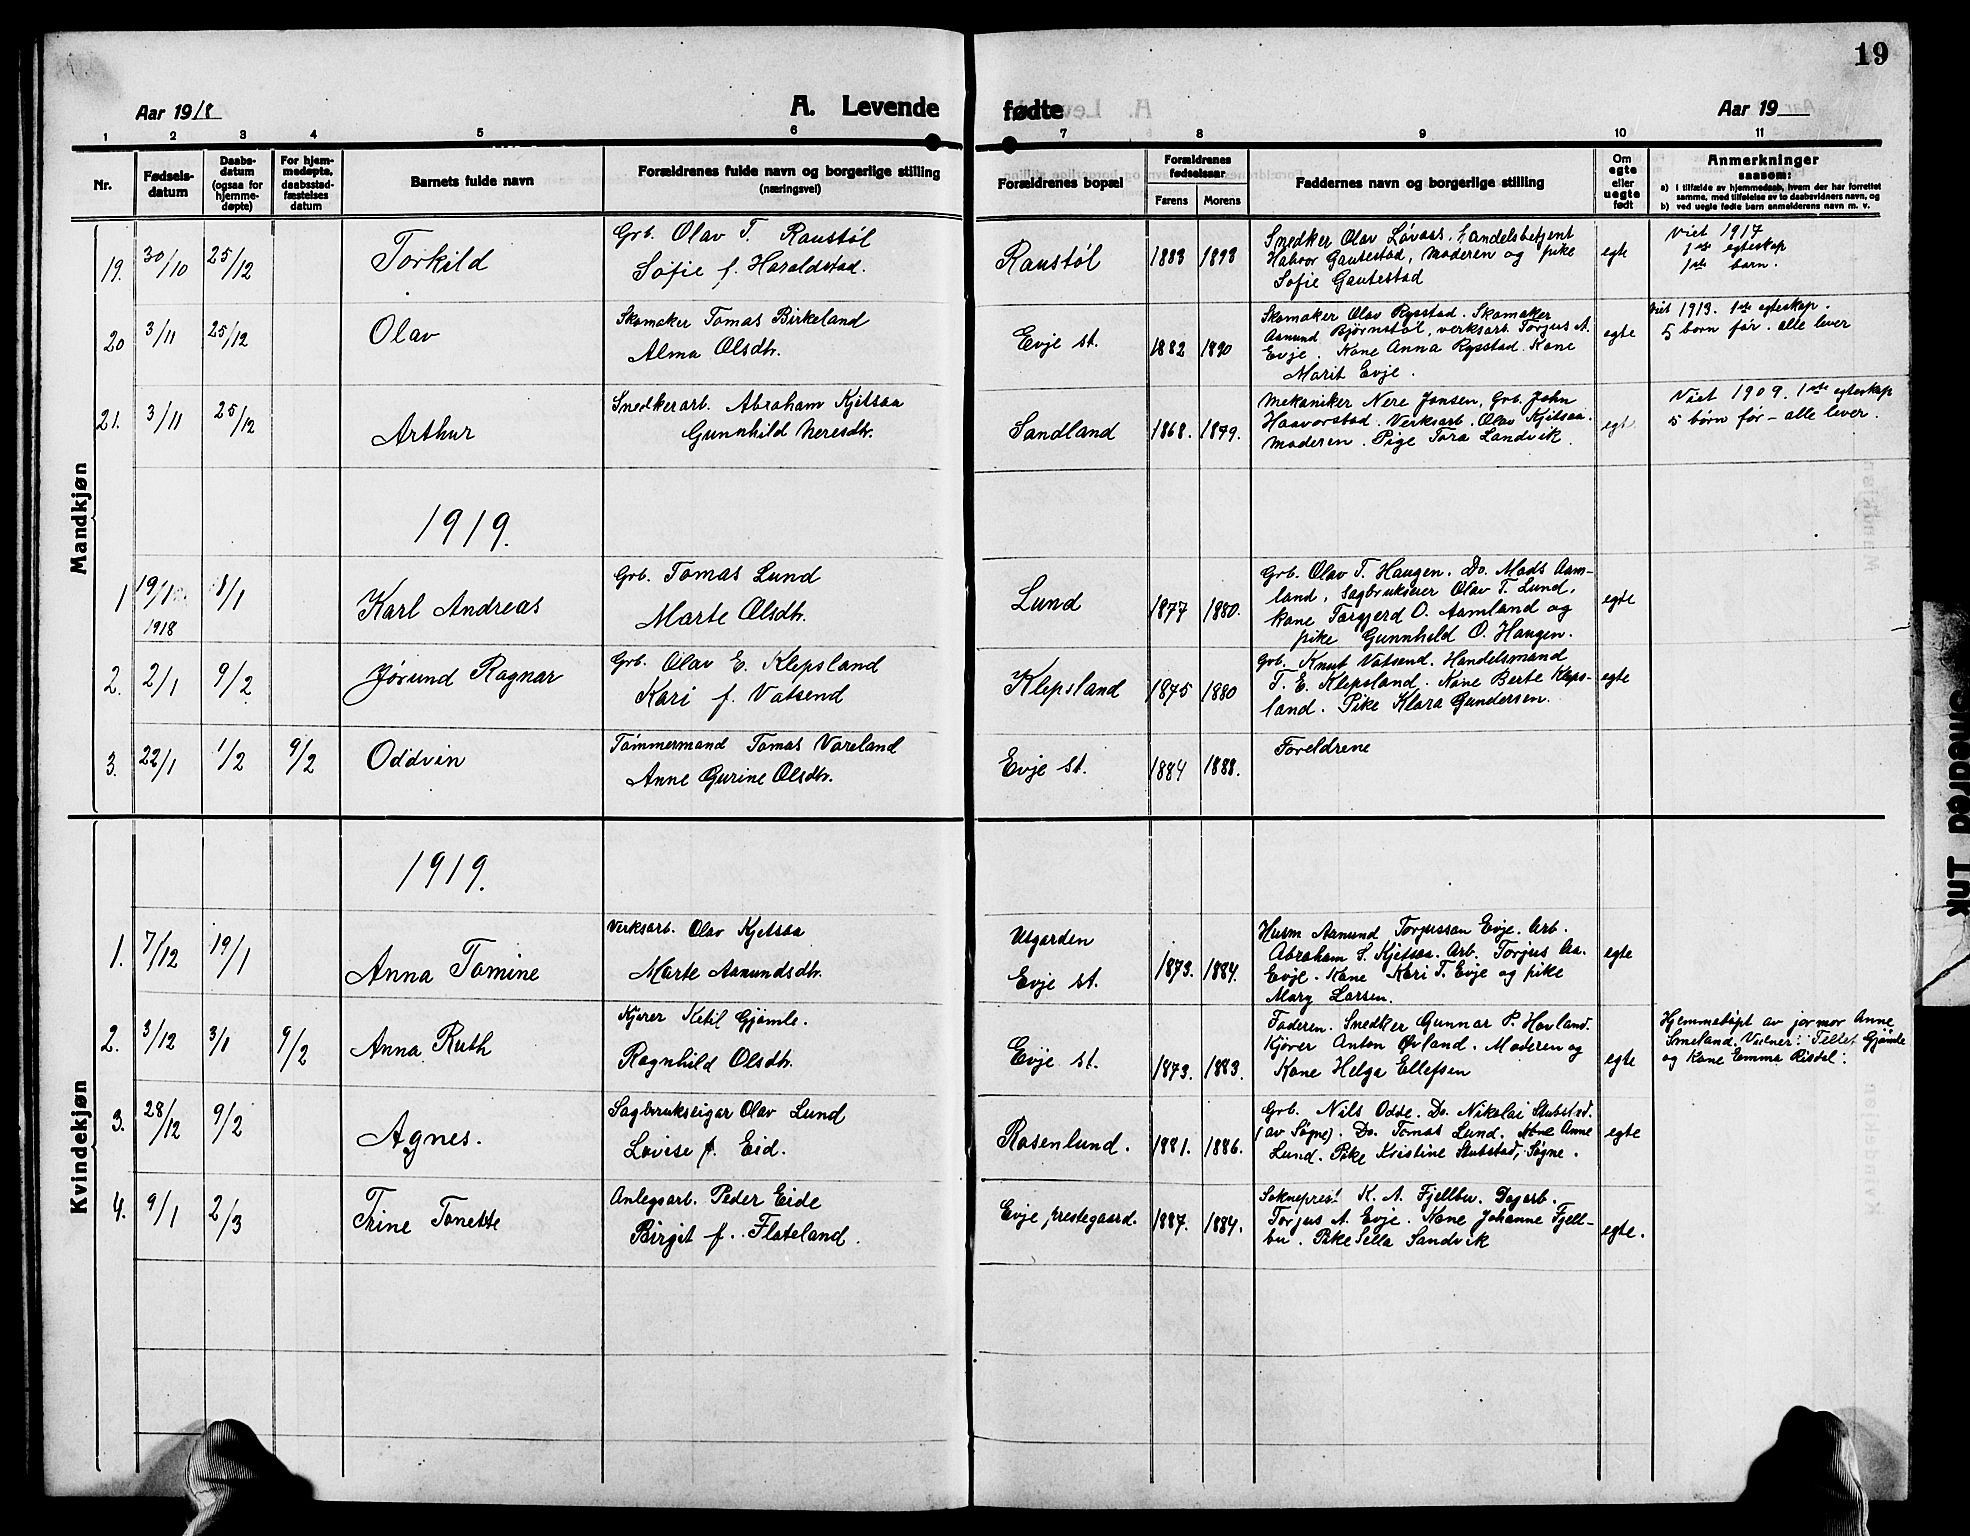 19
Aar 1918
A. Levende
fødte
Aar 19
1 2 3 4 5 6 7 8 9 10 11
Nr.
Fødsels-
datum
Daabs-
datum
(ogsaa for
hjemme-
døpte)
For hjem-
medøpte,
daabsstad-
fæstelses
datum
Barnets fulde navn
Forældrenes fulde navn og borgerlige stilling
(næringsvei)
Forældrenes bopæl
Forældrenes
fødselsaar
Farens Morens
Faddernes navn og borgerlige stilling
Om
egte
eller
uegte
født
Anmerkninger
saasom:
a) i tilfælde av hjemmedaab, hvem der har forrettet
samme, med tilføielse av to daabsvidners navn, og
b) ved uegte fødte barn anmelderens navn m. v.
Mandkjøn
19. 30/10 25/12 Torkild
Grb. Olav T. Raustøl
Sofie f. Haraldstad.
Raustøl 1883 1898
Snedker Olav Løvaas. Handelsbetjent
Halvor Gautestad, moderen og pike
Sofie Gautestad
egte
Viet 1917
1ste egteskap
1ste barn.
20 3/11 25/12 Olav
Skomaker Tomas Birkeland
Alma Olsdtr.
Evje st. 1882 1890
Skomaker Olav Rysstad. Skomaker
Aamund Bjørnstøl, verksarb. Torjus A.
Evje. Kone Anna Rysstad. Kone
Marit Evje.
egte
Viet 1913. 1ste egteskap.
5 born før. alle lever
21. 3/11 25/12 Arthur
Snedkerarb. Abraham Kjetsaa
Gunnhild Neresdtr.
Sandland 1868. 1879.
Mekaniker Nere Jansen, Grb. John
Haavorstad. Verksarb. Olav Kjetsaa.
Moderen. Pige Tora Landvik.
egt.
Viet 1909. 1ste egteskap
5 børn før – alle lever.
1919.
1 19/1 1918 8/1 Karl Andreas
Grb. Tomas Lund
Marte Olsdtr.
Lund 1877 1880.
Grb. Olav T. Haugen. Do. Mads Aam-
land, Sagbrukseier Olav T. Lund,
kone Torgjerd O. Aamland og
pike Gunnhild O. Haugen.
egte
2. 2/1 9/2 Jørund Ragnar
Grb. Olav E. Klepsland
Kari f. Vatsend
Klepsland 1875 1880
Grb. Knut Vatsend. Handelsmand
T. E. Klepsland. Kone Berte Kleps-
land. Pike Klara Gundersen.
egte
3. 22/1 1/2 9/2 Oddvin
Tømmermand Tomas Vareland
Anne Gurine Olsdtr.
Evje st. 1884 1888.
Foreldrene
Kvindekjøn
1919.
1. 7/12 19/1 Anna Tomine
Verksarb. Olav Kjetsaa
Marte Aamundsdtr.
Utgarden
Evje st. 1873. 1884.
Husm Aamund Torjussan Evje. Arb.
Abraham S. Kjetsaa. Arb. Torjus Aa.
Evje. Kone Kari T. Evje og pike
Mary Larsen.
egte
2. 3/12 3/1 9/2 Anna Ruth
Kjører Ketil Gjømle.
Ragnhild Olsdtr.
Evje st. 1873. 1883.
Faderen. Snedker Gunnar P. Hovland.
Kjører Anton Øvland. Moderen og
Kone Helga Ellefsen
egte
Hjemmedøpt av jormor Anne
Smeland. Vidner: Tellef Gjømle
og Kone Emma Risdal.
3. 28/12 9/2 Agnes.
Sagbrukseigar Olav Lund
Lovise f. Eid.
Rosenlund. 1881. 1886.
Grb. Nils Odde. Do. Nikolai Stubstad.
(av Søgne). Do. Tomas Lund. Kone Anne
Lund. Pike Kristine Stubstad, Søgne.
egte
4. 9/1 2/3 Trine Tonette
Anlegsarb. Peder Eide
Birgit f. Flateland.
Evje prestegaard. 1887. 1884.
Sokneprest K. A. Fjellbu. Dagarb.
Torjus A. Evje. Kone Johanne Fjell-
bu. Pike Sella Sandvik
egte.